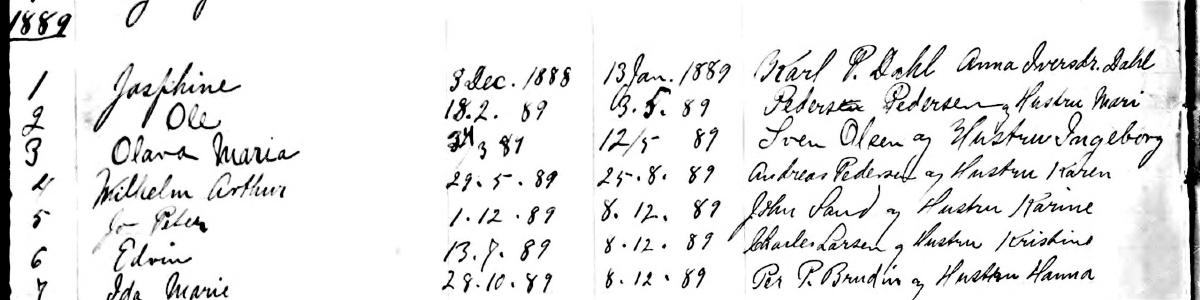 1889
1 Josphine 3 Dec. 1888 13 Jan. 1889 Karl P. Dahl Anna Iversdr. Dahl
2 Ole 18.2. 89 3. 5. 89 Pedersen og Hustru Mari
3 Olava Maria 3 89 12/5 89 Sven Olsen og Hustru Ingeborg
4 Wilhelm Arthur 29. 5. 89 25. 8. 89 Andreas Pedersen og Hustru Karen
5 Jo Peter 1. 12. 89 8. 12. 89 John Sand og Hustru Karine
6 Edvin 13. 7. 89 8. 12. 89 Charles Larsen og Hustru Kristine
7 Ida Marie 28. 10. 89 8. 12. 89 Per P. Brudin og Hustru Hanna